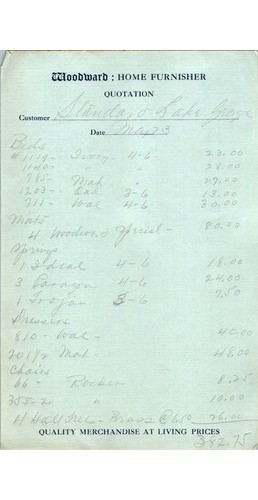 Woodward : HOME FURNISHER
QUOTATION
Customer Standard Lake George
Date May 23
Beds
# 1119 - Ivory 4-6 23.00
1140 - " " 28.00
785 - Mah " 27.00
1203 - Oak 3-6 13.00
711 - Wal 4-6 30.00
Matts
4 Woodward Special - 80.00
Springs
1 Ideal 4-6 18.00
3 Paragon 4-6 24.00
1 Trojan 3-6 7.50
Dressers
810 - Wal - 40.00
201/2 Mah - 48.00
Chairs
66 - Rocker 8.25
355-2 10.00
4 Hall Trees - Brass @ 6.50 26.00
QUALITY MERCHANDISE AT LIVING PRICES
382.75